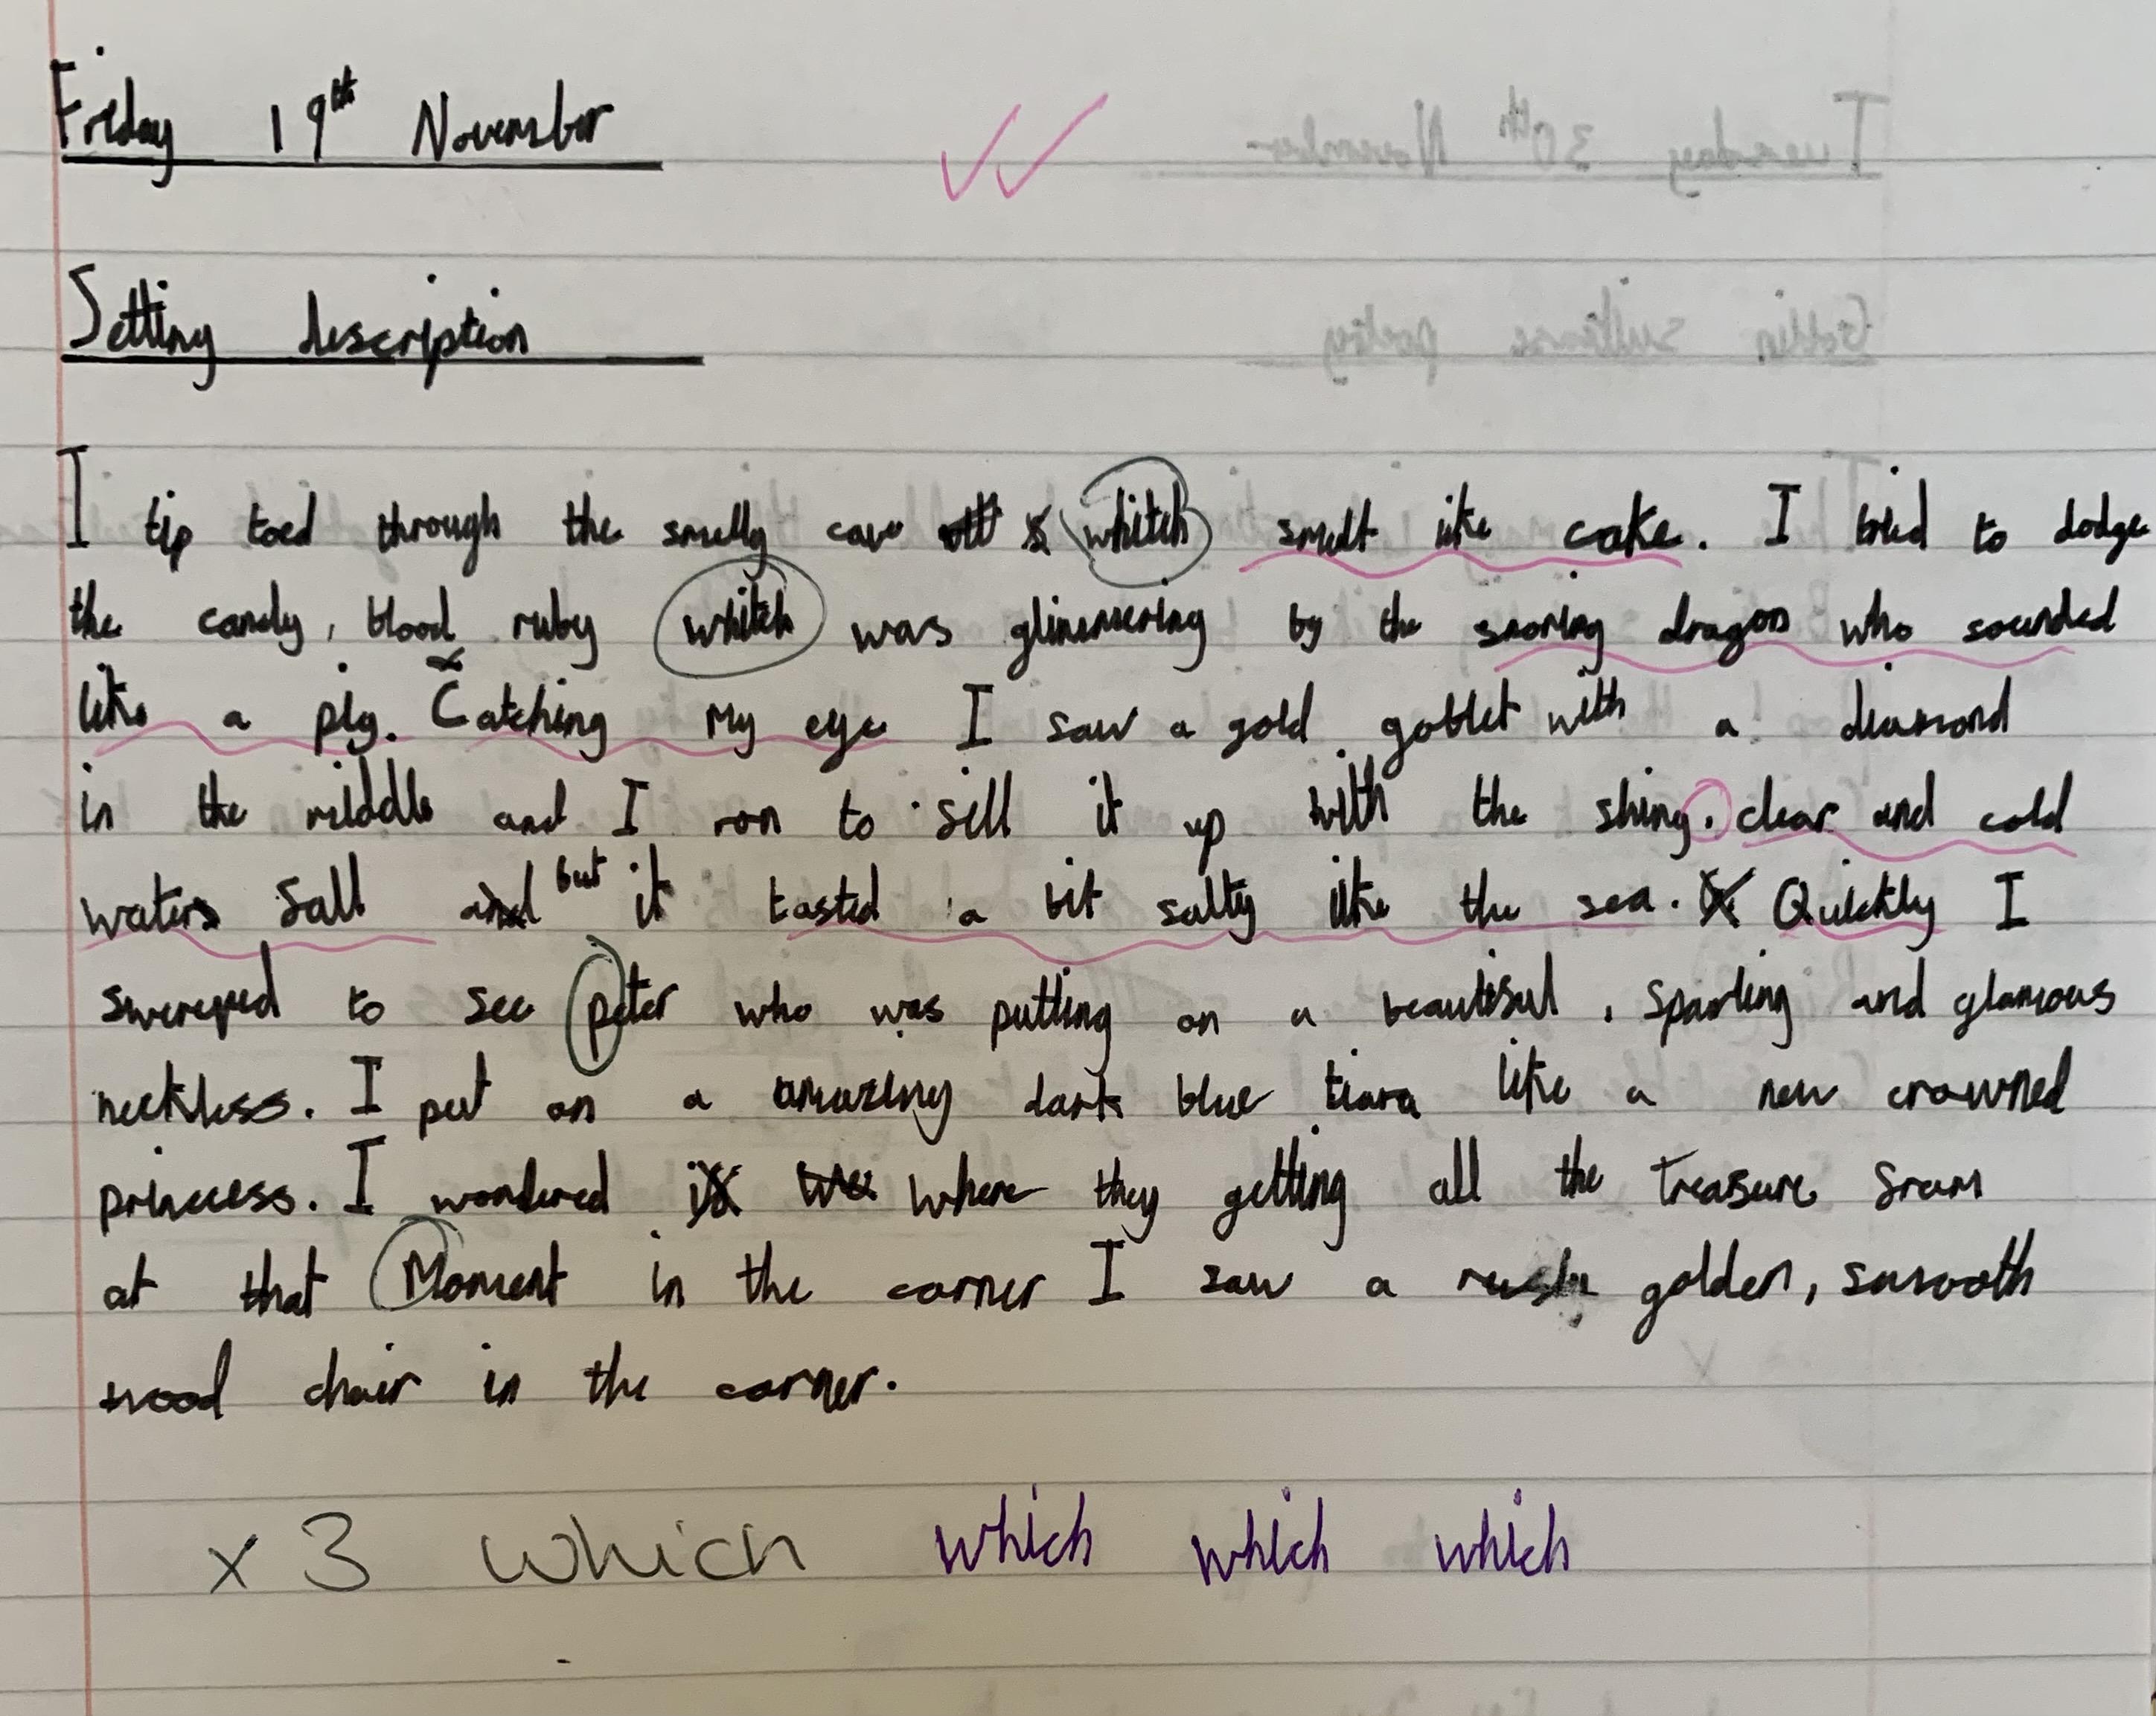 Friday 19th November
Setting description
I tip toed through the smelly cave whitch smelt like cake. I tried to dodge
the candy, blood ruby whitch was glimmering by the snoring dragon who sounded
like a pig. Catching My eye I saw a gold goblet with a diamond
in the middle and I ran to fill it up with the shiny, clear and cold
waters fall but it tasted a bit salty like the sea. Quickly I
swereped to see peter who was putting on a beautiful, sparling and glamous
neckless. I put on a amazing dark blue tiara like a new crowned
princess. I wondered where they getting all the treasure fram
at that Moment in the corner I saw a golden, smooth
wood chair in the corner.
x 3 which which which which